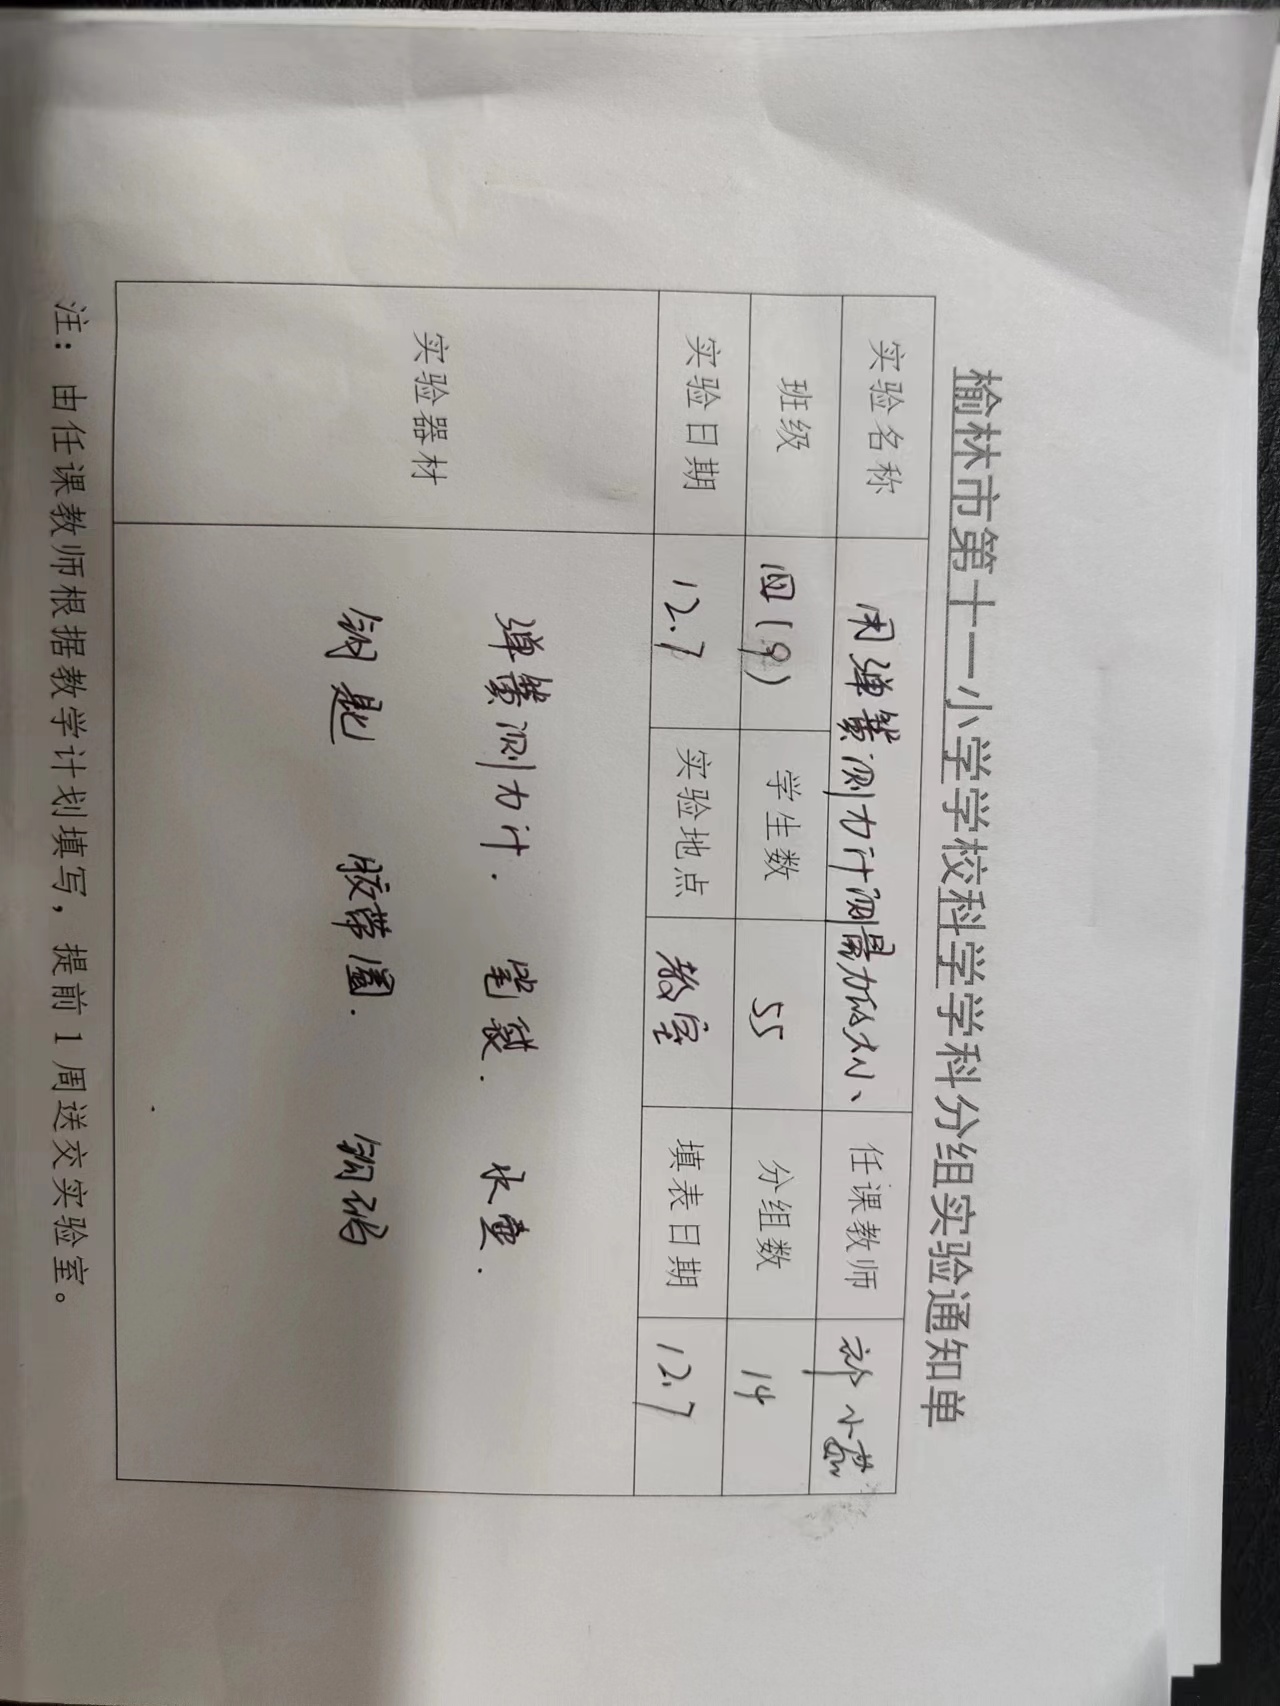 榆林市第十一小学学校科学学科分组实验通知单
实验名称 用弹簧测力计测量力的大小、 任课教师 祁小茹
班级 四(9) 学生数 55 分组数 14
实验日期 12.7 实验地点 教室 填表日期 12.7
实验器材
弹簧测力计. 笔袋. 水壶.
钥匙 胶带圈. 钩码
注：由任课教师根据教学计划填写，提前1周送交实验室。